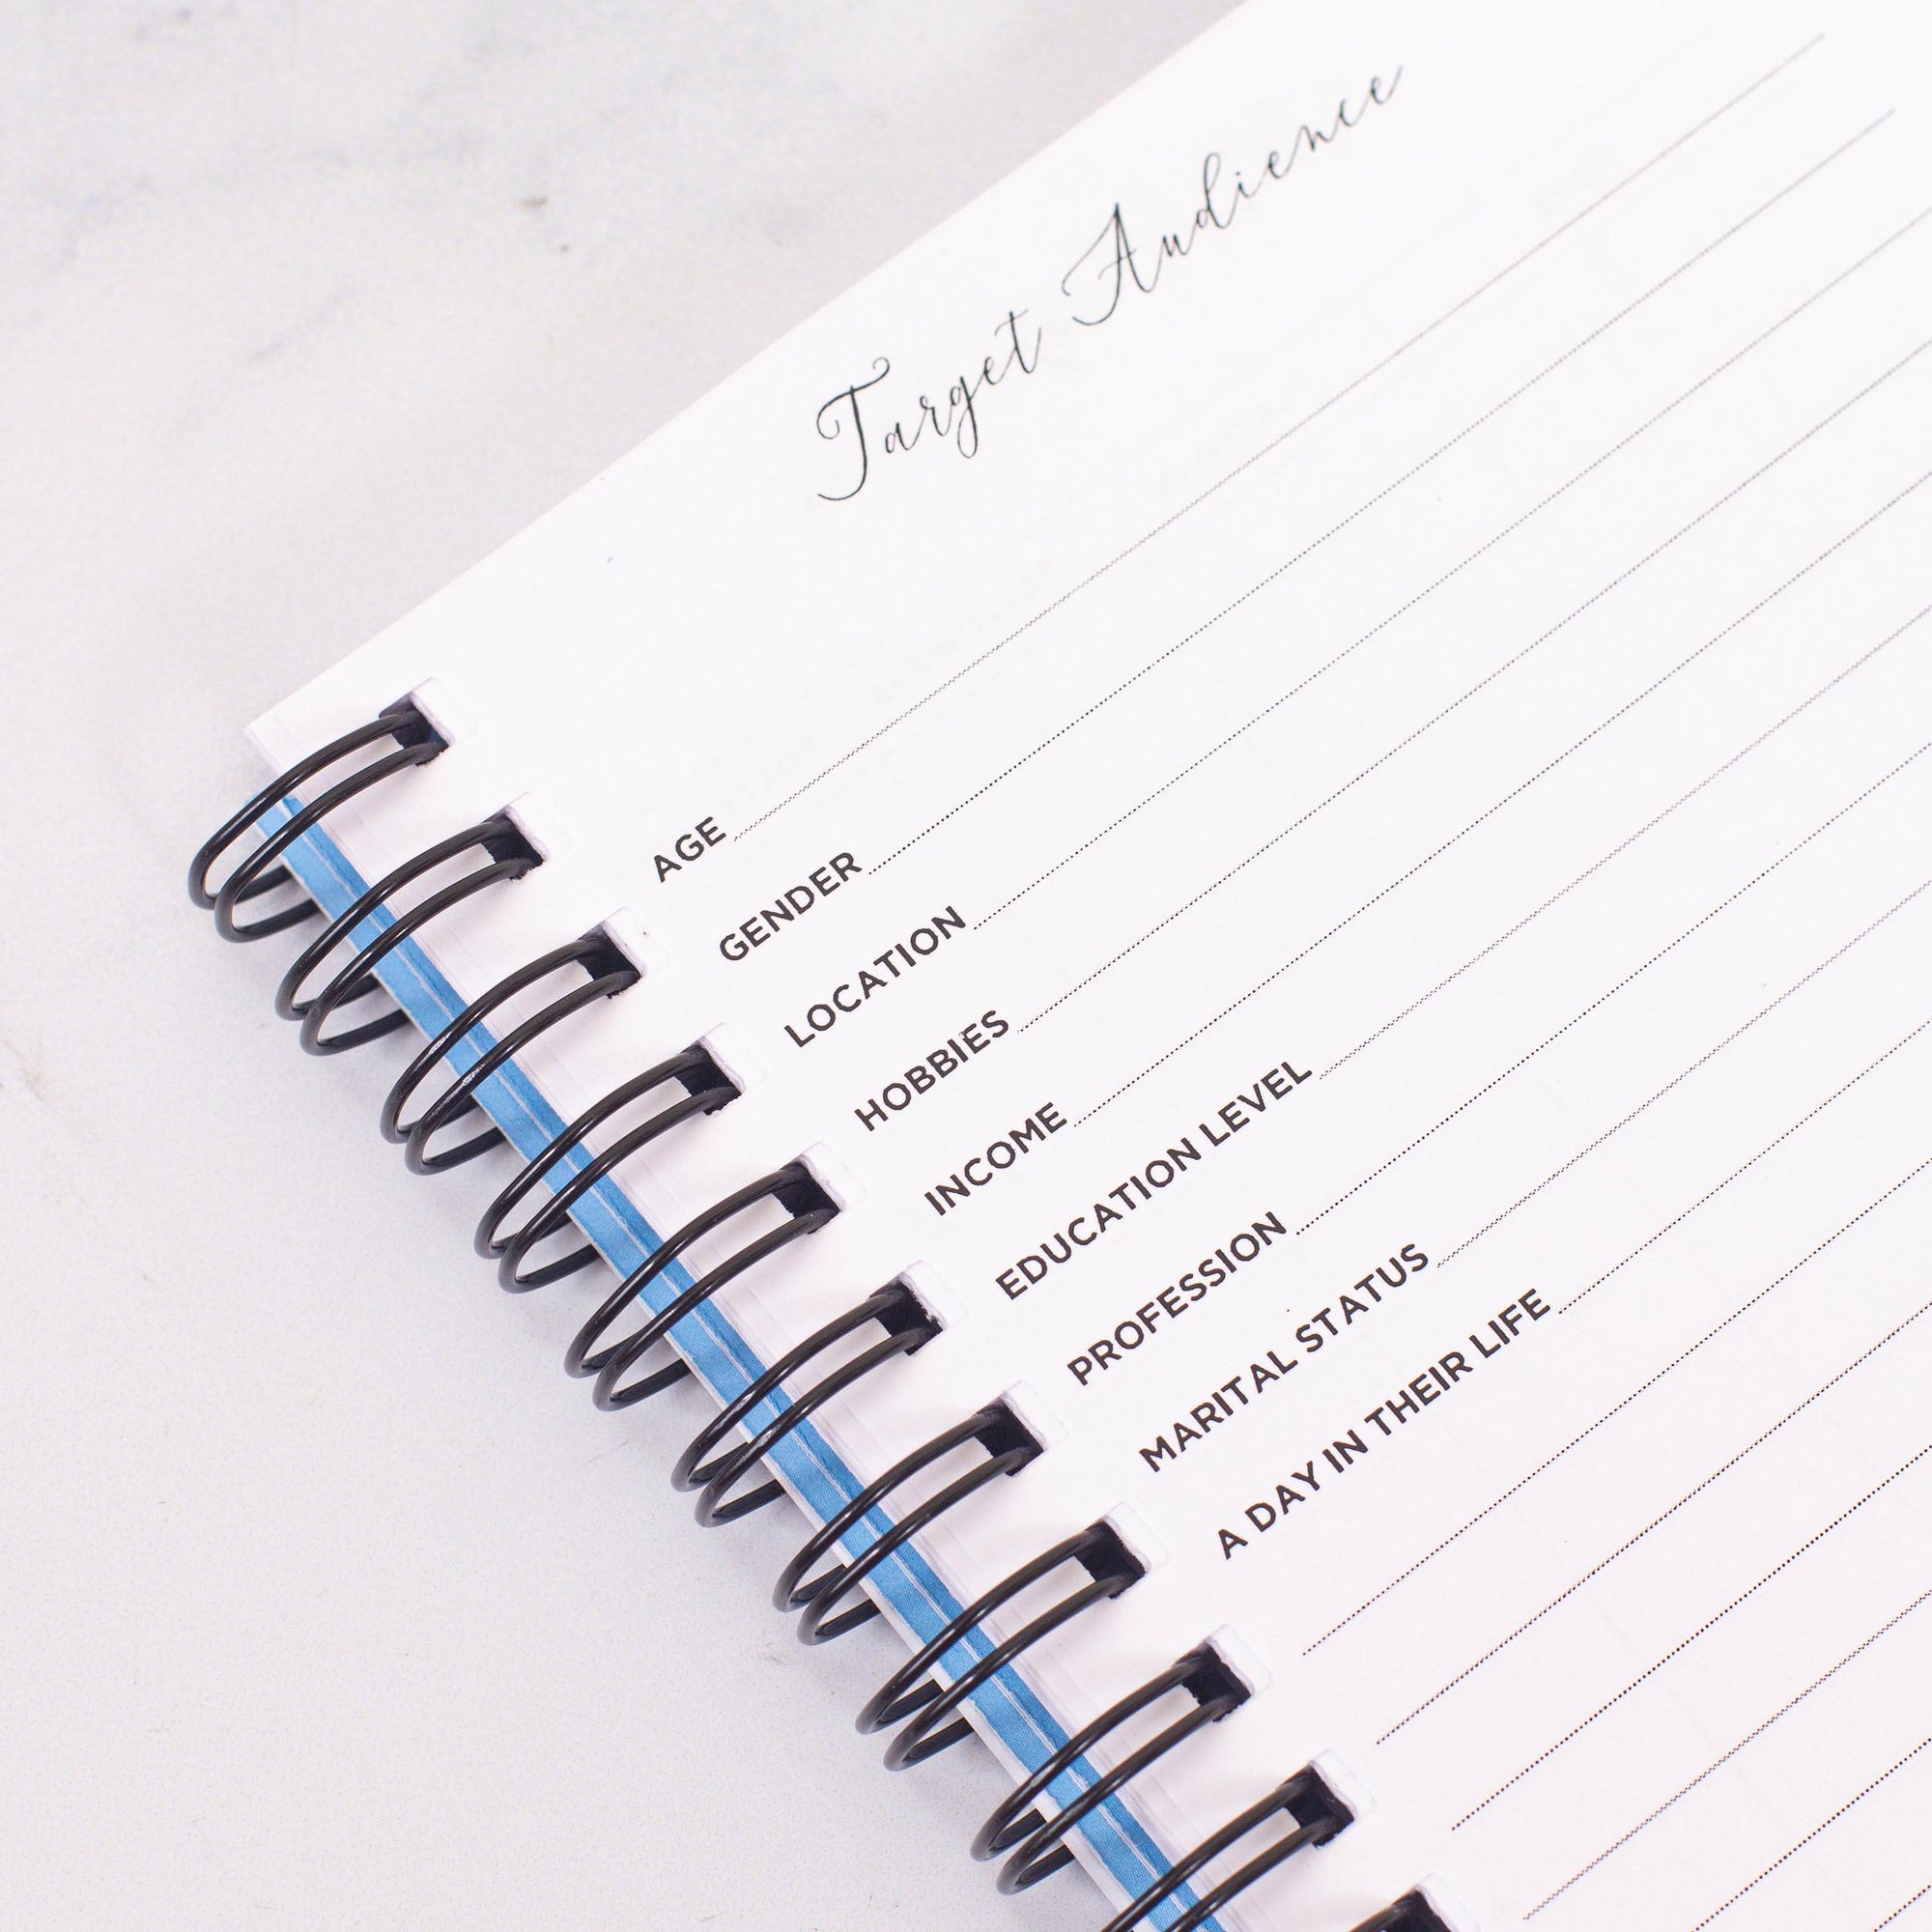 Target Audience
AGE
GENDER
LOCATION
HOBBIES
INCOME
EDUCATION LEVEL
PROFESSION
MARITAL STATUS
A DAY IN THEIR LIFE